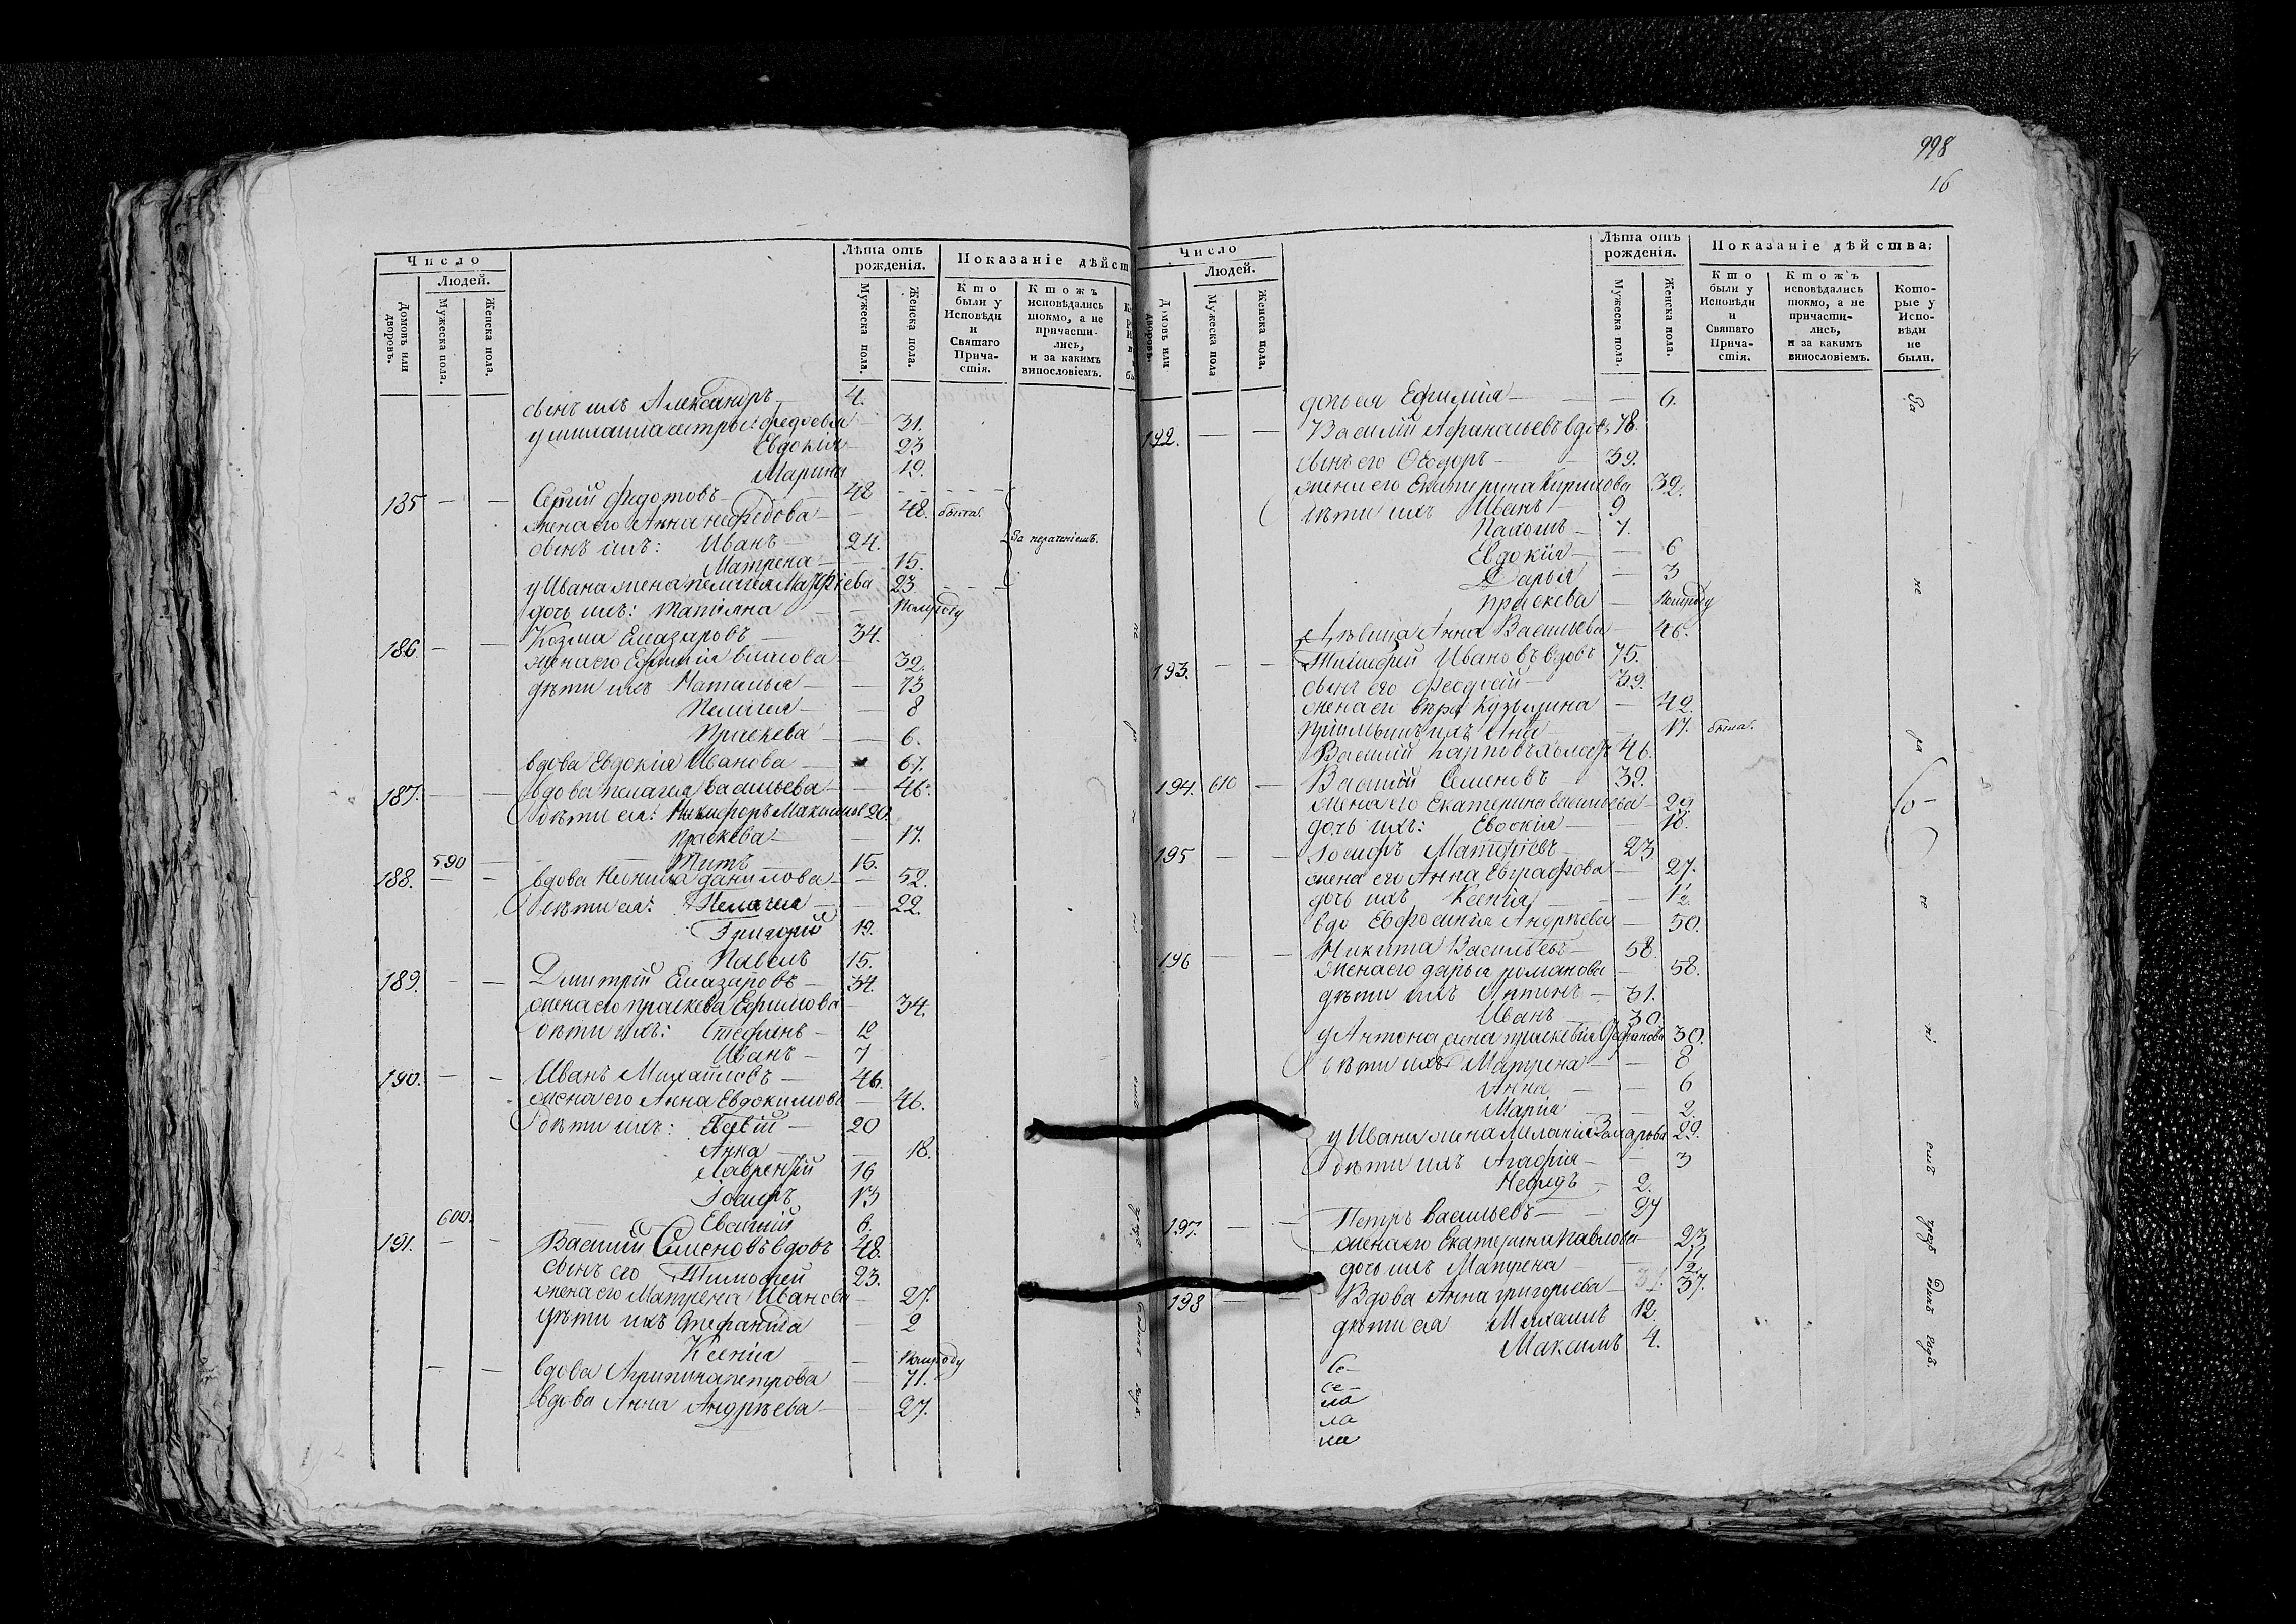 Число
Людей.
Домовъ или дворовъ.
Мужеска пола.
Женска пола.
Лѣта отъ рожденія.
Мужеска пола.
Женска пола.
Показаніе дѣйст
Кто были у Исповѣди и Святаго Причастія.
Ктожъ исповѣдались токмо, а не причастились, и за какимъ винословіемъ.
сынъ ихъ Александръ 4.
31.
Евдокія 23
Марина 19.
185 — — Сергій Федотовъ 48
жена его Анна Нефедова — 48. была.
сынъ ихъ: Иванъ — 24.
За нераченіемъ.
Матрена — 15.
у Ивана жена Пелагея Матфіева 23
дочь ихъ: Татіана — полугоду
186. — — Козма Елазаровъ — 34.
жена его Ефимія Власова 39.
дѣти ихъ Наталья — — 13
Пелагея — — 8
Праскева — 6.
вдова Евдокія Иванова — 67.
187. — — вдова Пелагея Васильева — 46.
дѣти ея: Никифоръ Максимовъ 20
Праскева — 17.
590 — Титъ 15.
188. — — вдова Ненила Данилова — 52.
дѣти ея: Пелагея — 22.
Григорій 19.
Павелъ 15.
189. — — Дмитрій Елазаровъ — 34.
жена его Праскева Ефимова 34.
дѣти ихъ: Стефанъ — 12
Иванъ — 7
190. — — Иванъ Михайловъ — 46.
жена его Анна Евдокимова — 46.
дѣти ихъ: 20
Анна — 18.
Лаврентій 16
Іосифъ 13
600. Евсигній 6.
191. — — Василій Семеновъ вдовъ 48.
сынъ его Тимофей 23.
жена его Матрена Иванова 27.
дѣти ихъ Стефанида — 2
Ксенія — полугоду
вдова Агрипина Петрова — 71.
вдова Анна Андрѣева — 27.
998
16
Число
Людей.
Домовъ или дворовъ.
Мужеска пола
Женска пола.
Лѣта отъ рожденія.
Мужеска пола.
Женска пола.
Показаніе дѣйства:
Кто были у Исповѣди и Святаго Причастія.
Ктожъ исповѣдались токмо, а не причастились, и за какимъ винословіемъ.
Которые у Исповѣди не были.
дочь ея Ефимія — — 6.
192. — — Василій Афанасьевъ вдовъ 78.
сынъ его Ѳеодоръ — 39.
жена его Екатерина Кирилова 39.
дѣти ихъ Иванъ 9
Пахомъ — 7.
Евдокія — — 6
Дарья — 3
Праскева — полугоду
дѣвица Анна Васильева — 46.
193. — — Тимофей Ивановъ вдовъ 75.
сынъ его 39.
жена его Вѣра Кузьмина — 42.
17. была.
Василій 46.
194. 610 — Василій Семеновъ — 39.
жена его Екатерина Васильева — 29
дочь ихъ: Евдокія — 18.
195 — — Іосифъ Матфіевъ — 23
жена его Анна Евграфова — 27.
дочь ихъ Ксенія 1/2
вдо Евфросинія Андрѣева — 50.
196 — — Никита Васильевъ — 58.
жена его Дарья Романова — 58.
дѣти ихъ Антонъ — 31.
Иванъ 30
у Антона жена Праскевія 30.
дѣти ихъ Матрена — 8
Анна — 6
Марія — 2.
у Ивана жена Меланія 29.
дѣти ихъ Агафія — 3
Нефедъ — 2.
197. — — Петръ Васильевъ — 27
жена его Екатерина Павлова — 23
дочь ихъ Матрена — 1/2
198 — — Вдова Анна Григорьева — 37.
дѣти ея Михаилъ 12.
Максимъ 4.
Се-
се-
ла
ла